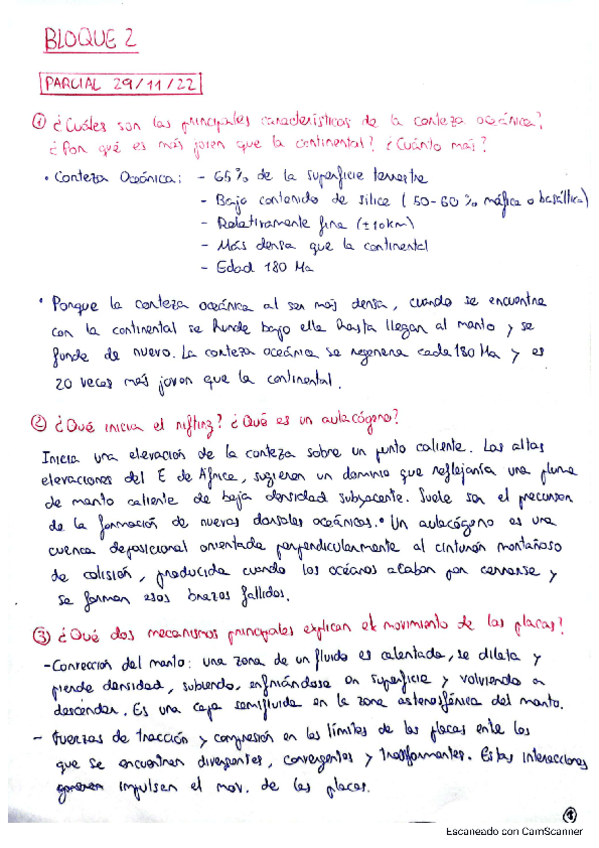 BLOQUE 2
PARCIAL 29/11/22
① ¿Cuáles son las principales características de la corteza oceánica?
¿Por qué es más joven que la continental? ¿Cuánto más?
• Corteza Oceánica: - 65% de la superficie terrestre
- Bajo contenido de sílice (50-60% máfica o basáltica)
- Relativamente fina (±10km)
- Más densa que la continental
- Edad 180 Ma
• Porque la corteza oceánica al ser más densa, cuando se encuentra
con la continental se hunde bajo ella hasta llegar al manto y se
funde de nuevo. La corteza oceánica se regenera cada 180 Ma y es
20 veces más joven que la continental.
② ¿Qué inicia el rifting? ¿Qué es un aulacógeno?
Inicia una elevación de la corteza sobre un punto caliente. Las altas
elevaciones del E de África, sugieren un dominio que reflejaría una pluma
de manto caliente de baja densidad subyacente. Suele ser el precursor
de la formación de nuevas dorsales oceánicas. • Un aulacógeno es una
cuenca deposicional orientada perpendicularmente al cinturón montañoso
de colisión, producida cuando los océanos acaban por cerrarse y
se forman esos brazos fallidos.
③ ¿Qué dos mecanismos principales explican el movimiento de las placas?
- Convección del manto: una zona de un fluido es calentada, se dilata y
pierde densidad, subiendo, enfriándose en superficie y volviendo a
descender. Es una capa semifluida en la zona astenosférica del manto.
- Fuerzas de tracción y compresión en los límites de las placas entre los
que se encuentran divergentes, convergentes y transformantes. Estas interacciones
generan impulsen el mov. de las placas.
①
Escaneado con CamScanner